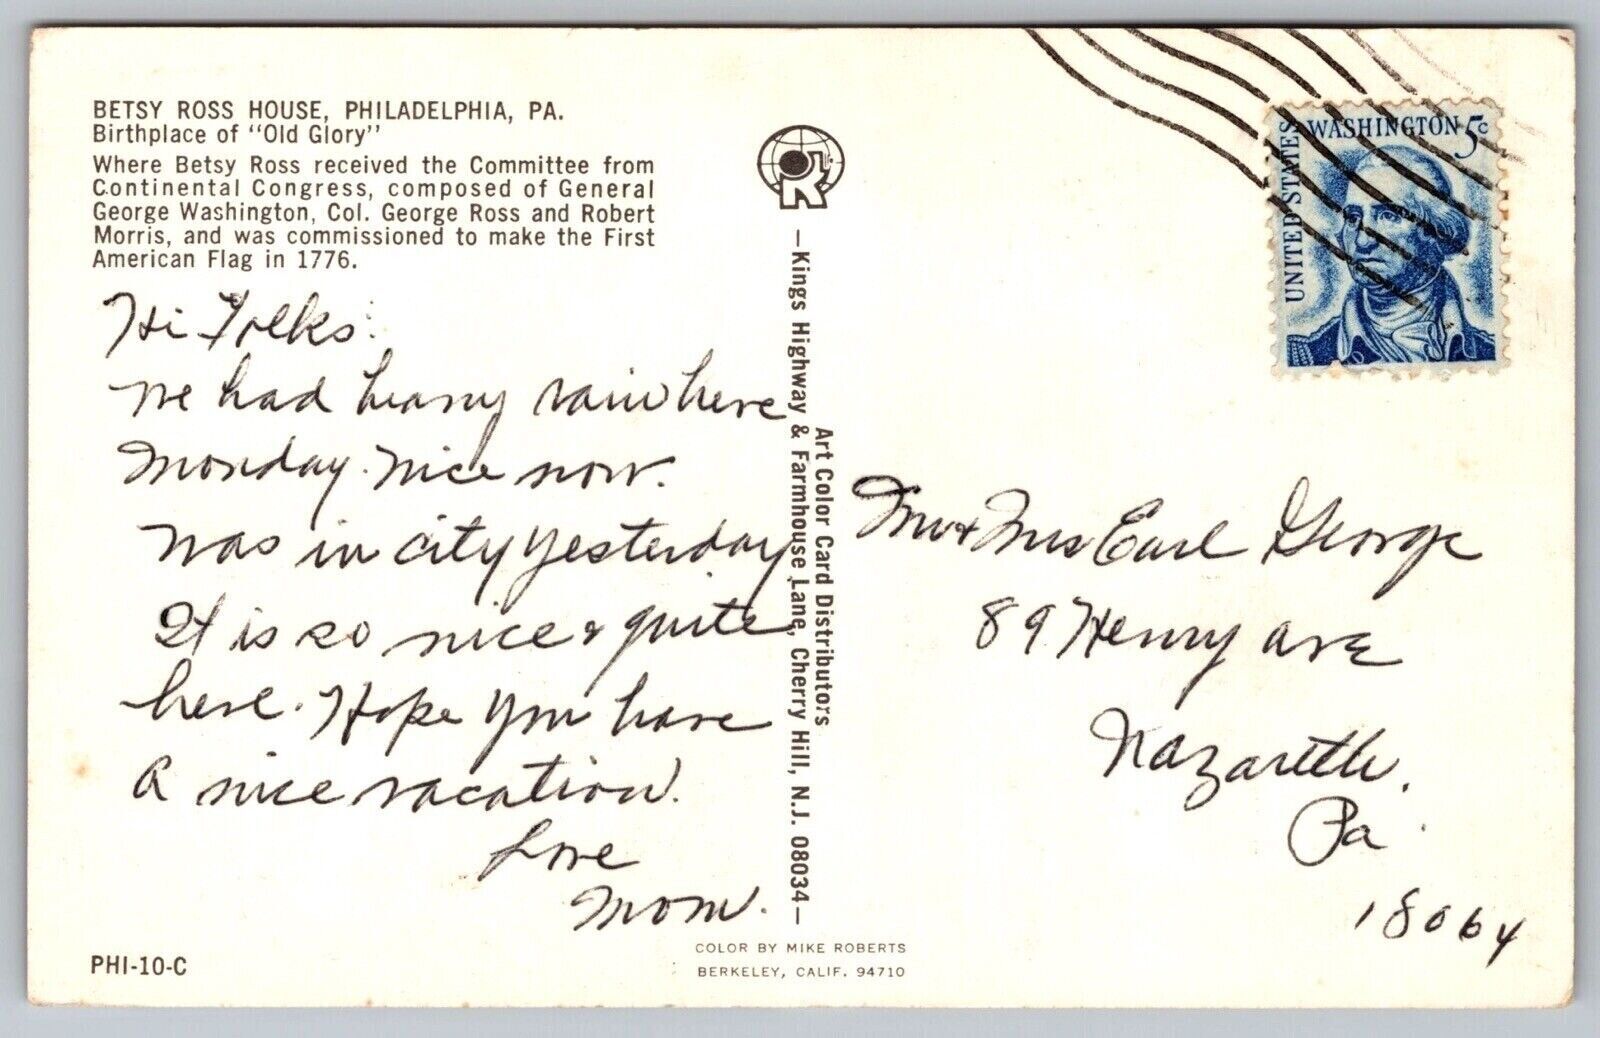 BETSY ROSS HOUSE, PHILADELPHIA, PA.
Birthplace of "Old Glory"
Where Betsy Ross received the Committee from
Continental Congress, composed of General
George Washington, Col. George Ross and Robert
Morris, and was commissioned to make the First
American Flag in 1776.
Hi Folks:
We had heavy rain here
Monday. Nice now.
Was in city yesterday
It is so nice & quite
here. Hope you have
a nice vacation.
Love
Mom.
PHI-10-C
R
Art Color Card Distributors
—Kings Highway & Farmhouse Lane, Cherry Hill, N.J. 08034—
COLOR BY MIKE ROBERTS
BERKELEY, CALIF. 94710
UNITED STATES
WASHINGTON 5c
Mr & Mrs Earl George
89 Henry Ave
Nazareth.
Pa.
18064